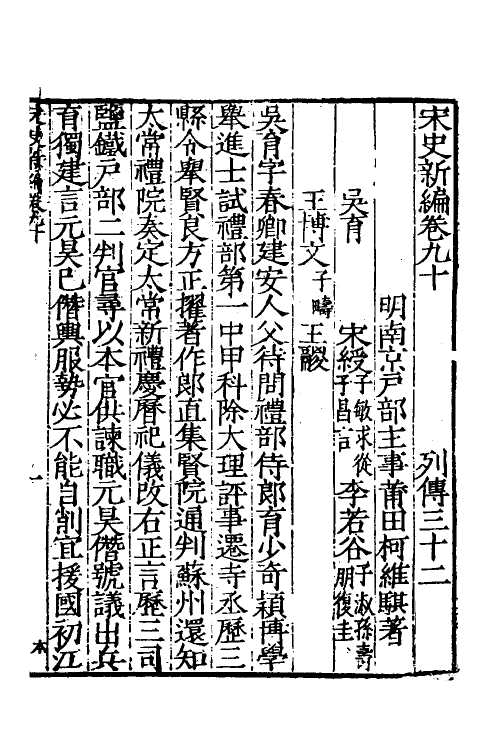 宋史新編卷九十 列傳三十二
明南京戶部主事莆田柯維騏著
吳育 宋綬子敏求從子昌言 李若谷子淑孫壽朋復圭
王博文子疇 王鬷
吳育字春卿建安人父待問禮部侍郎育少奇穎博學
舉進士試禮部第一中甲科除大理評事遷寺丞歷三
縣令舉賢良方正擢著作郎直集賢院通判蘇州還知
太常禮院奏定太常新禮慶曆祀儀改右正言歷三司
鹽鐵戶部二判官尋以本官供諫職元昊僭號議出兵
育獨建言元昊已僭輿服勢必不能自削宜援國初江
宋史新編卷九十 一 本